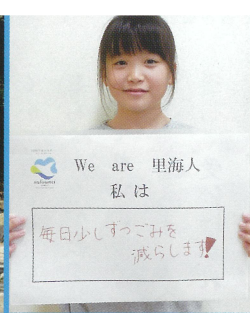 We are 里海人
私は
毎日少しずつごみを
減らします!